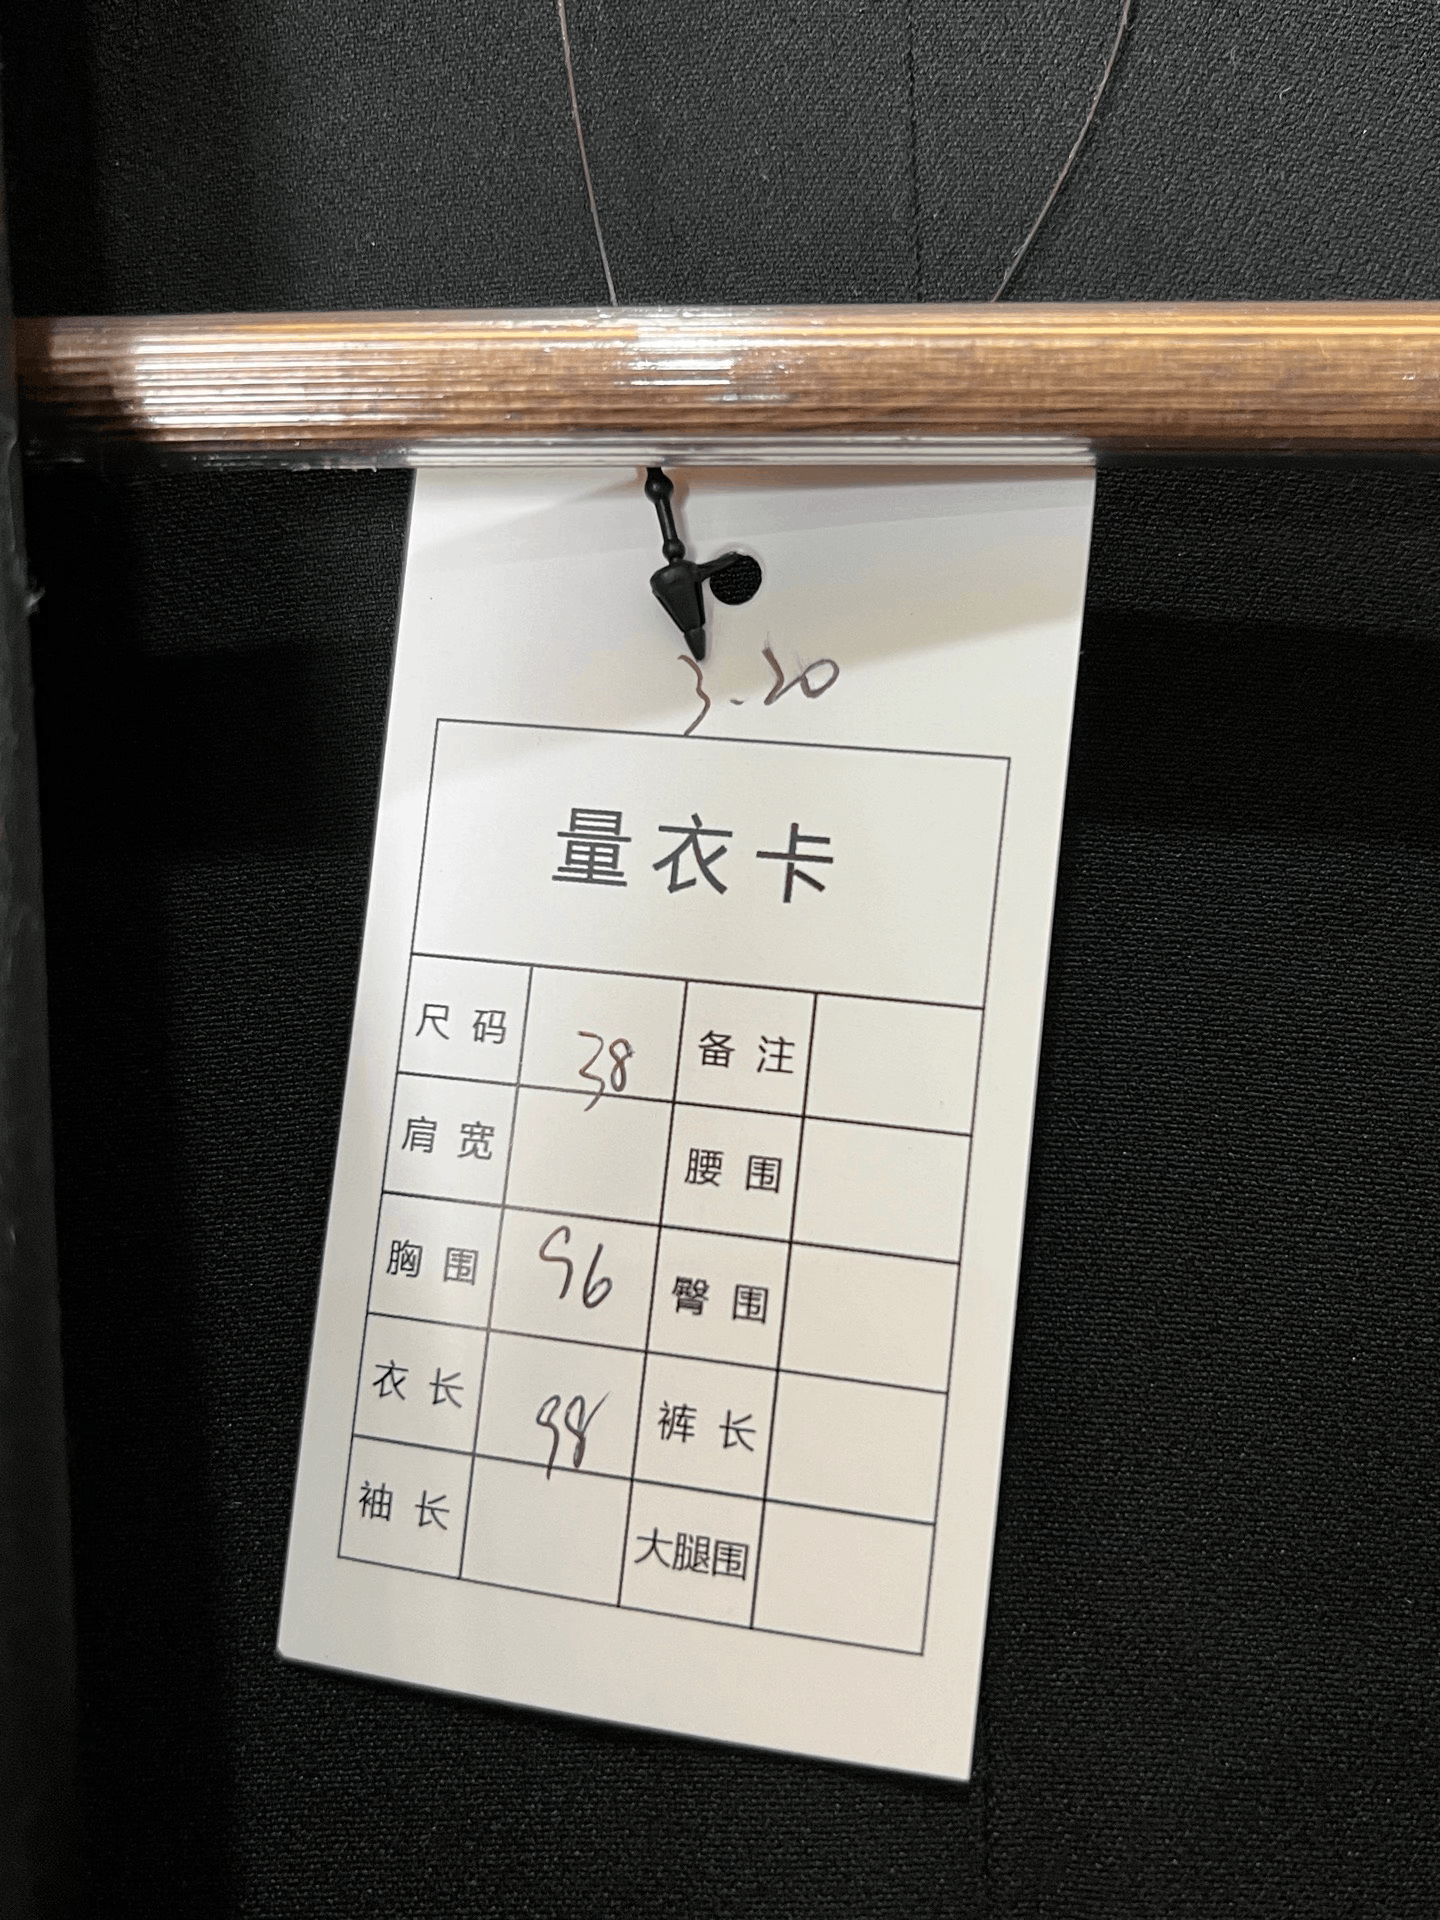 3.20
量衣卡
尺码 38 备注
肩宽 腰围
胸围 96 臀围
衣长 98 裤长
袖长 大腿围